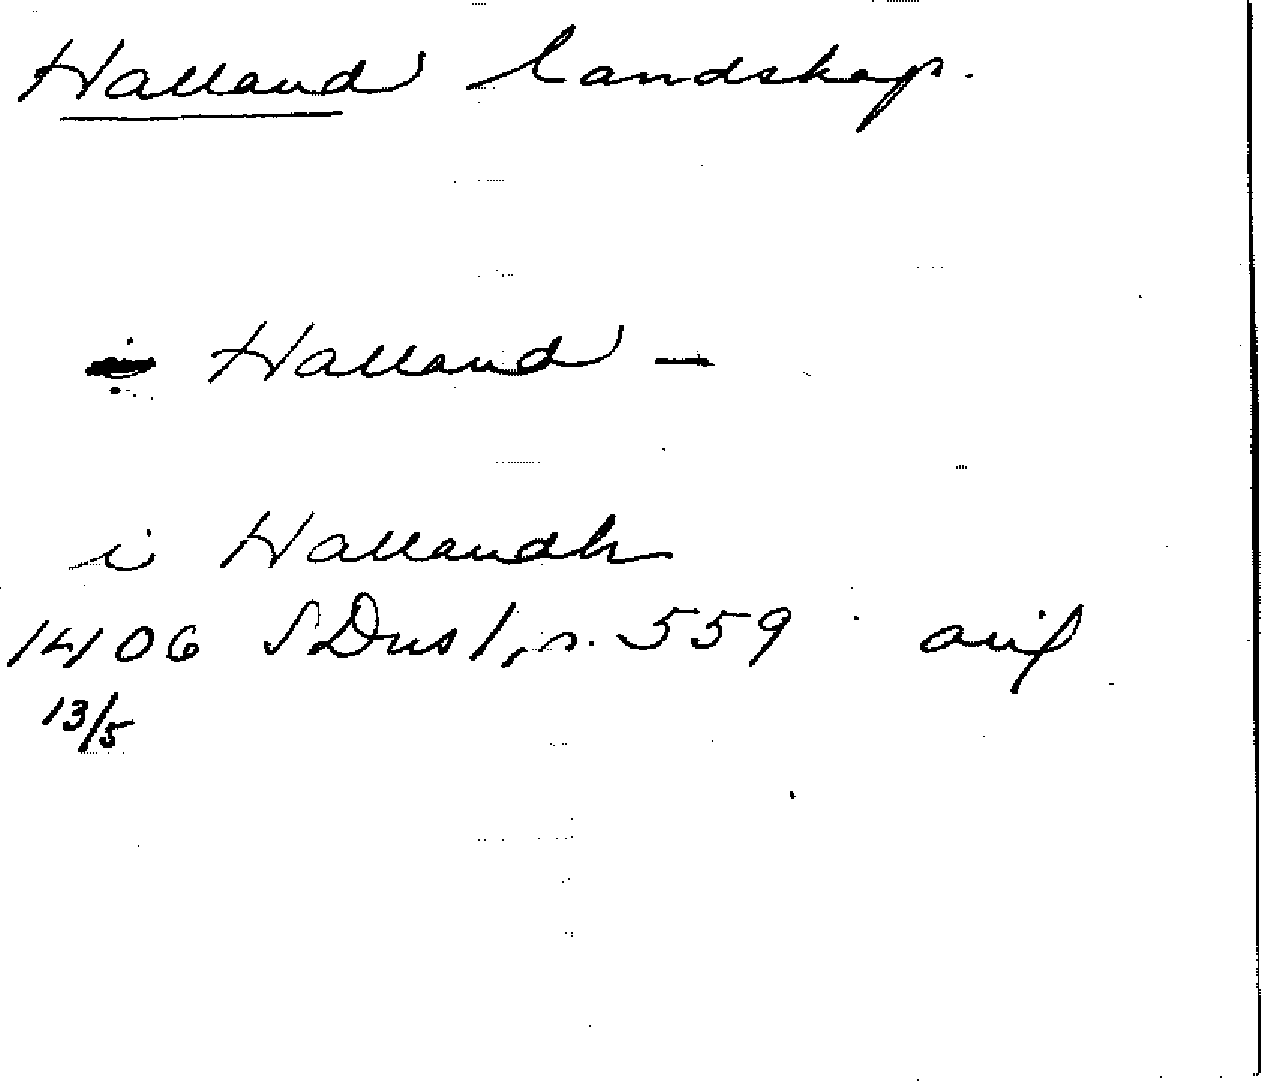 Halland landskap.
i Halland —
i Hallandh
1406 SDns 1, s. 559 avs
13/5